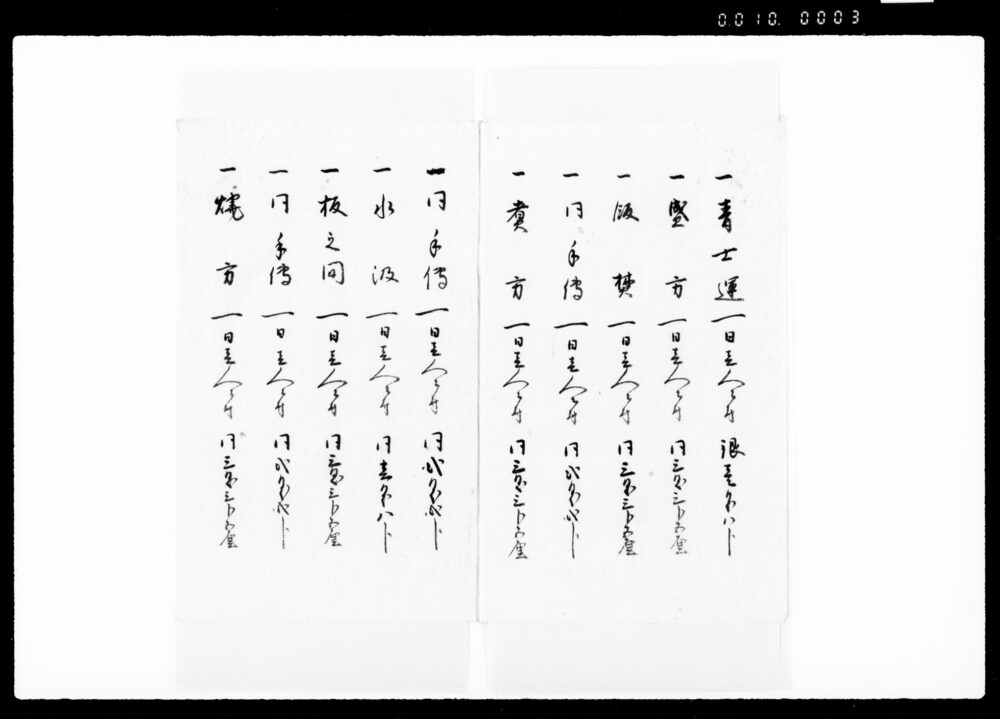 0.010. 0003
一青士運 一日壱人ニ付 銀壱匁八分
一盛方 一日壱人ニ付 同三匁三分五厘
一飯焚 一日壱人ニ付 同三匁三分五厘
一同手傳 一日壱人ニ付 同弐匁弐分
一煮方 一日壱人ニ付 同三匁三分五厘
一同手傳 一日壱人ニ付 同弐匁弐分
一水汲 一日壱人ニ付 同壱匁八分
一板之間 一日壱人ニ付 同三匁三分五厘
一同手傳 一日壱人ニ付 同弐匁弐分
一焼方 一日壱人ニ付 同三匁三分五厘